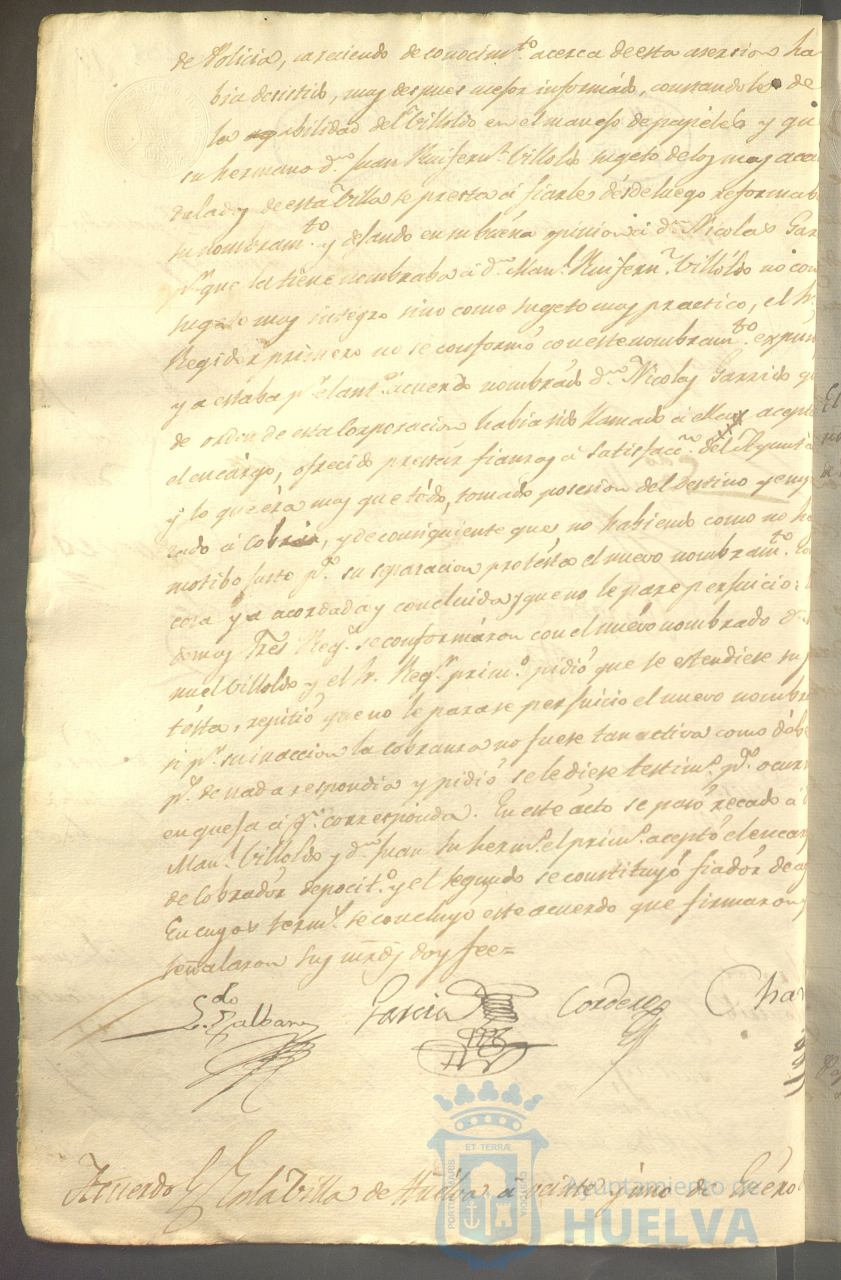 de Policia, careciendo de conocim.to acerca de esta asercion ha
bia desistido, mas despues mejor informado, constandole de
la probilidad del Villoldo en el manejo de papeles y qu
su hermano d.n Juan Ruifern.z Villoldo sugeto de los mas aca
dalados de esta Villa se presta á fiarle desde luego reformab
su nombram.to y dejando en su buena opinion á d.n Nicolas Gar
p.r que la tiene nombraba á d.n Man.l Ruifern.z Villoldo no con
sugeto mas integro sino como sugeto mas practico, el S.r
Regidor primero no se conformó con este nombram.to
y a estaba p.r el ant.r acuerdo nombrado d.n Nicolas Garrido q
de orden de esta Corporacion habia sido llamado á ella acept
el encargo, ofrecido prestar fianzas á satisfacc.n del Ayunta
y lo que era mas que todo, tomado posesion del destino y emp
zado á cobrar, y de consiguiente que no habiendo como no ha
motibo justo p.a su separacion protesta el nuevo nombram.to
cosa ya acordada y concluida y que no le pare perjuicio:
demas Tres Reg.s se conformaron con el nuevo nombrado d.n
nuel Villoldo y el S.r Reg.r prim.o pidio que se estendiese su p
testa, repitio que no le parase perjuicio el nuevo nombra
si p.r su inaccion la cobranza no fuese tan activa como deb
p.s de nada respondia y pidio se le diese testim.o p.a ocurr
en queja á q.n corresponda. En este acto se pasó recado á
Man.l Villoldo y d.n Juan su herm.o el prim.o aceptó el encar
de Cobrador deposit.o y el segundo se constituyó fiador de
En cuyos term.s se concluyo este acuerdo que firmaron y
señalaron sus mrds doy fee=
L.do Talbany Garcia Cordero Cha
Acuerdo En la Villa de Huelva á veinte y uno de Enero
ET TERRÆ
PORTUS MARIS
CUSTODIA
Ayuntamiento de
HUELVA